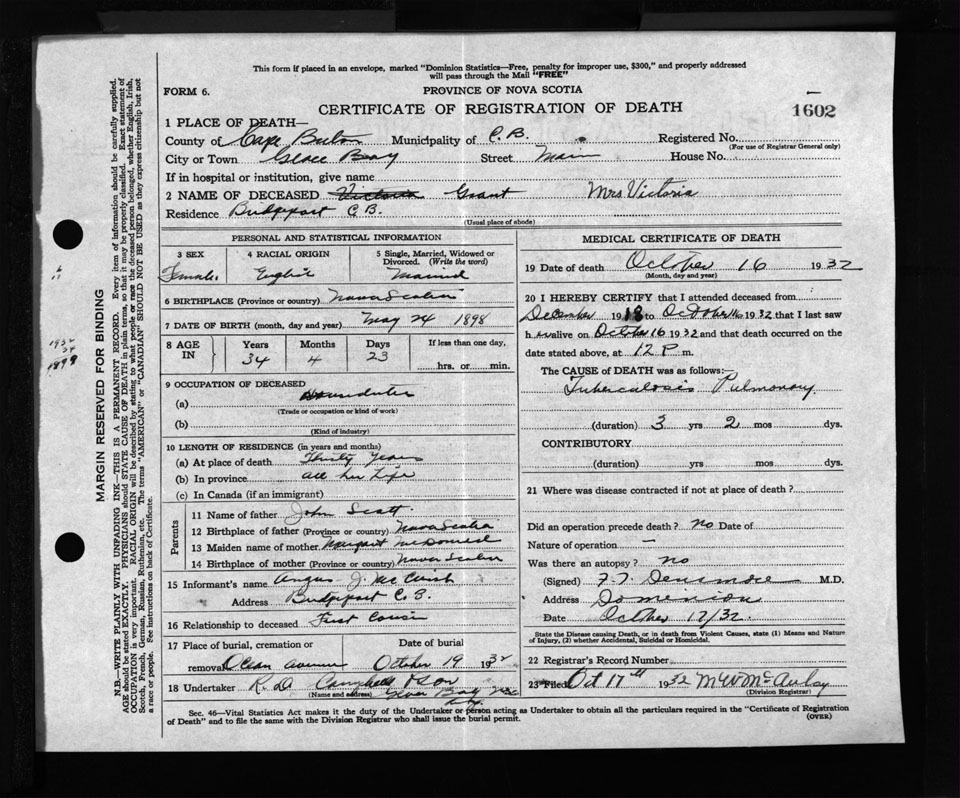 This form if placed in an envelope, marked "Dominion Statistics—Free, penalty for improper use, $300," and properly addressed
will pass through the Mail "FREE"
FORM 6.
PROVINCE OF NOVA SCOTIA
CERTIFICATE OF REGISTRATION OF DEATH
1602
1 PLACE OF DEATH—
County of Cape Breton Municipality of C. B. Registered No.
(For use of Registrar General only)
City or Town Glace Bay Street Main House No.
If in hospital or institution, give name
2 NAME OF DECEASED Victoria Grant Mrs Victoria
Residence Bridgeport C B.
(Usual place of abode)
PERSONAL AND STATISTICAL INFORMATION
3 SEX
Female
4 RACIAL ORIGIN
English
5 Single, Married, Widowed or
Divorced. (Write the word)
Married
6 BIRTHPLACE (Province or country) Nova Scotia
7 DATE OF BIRTH (month, day and year) May 24 1898
8 AGE IN
Years Months Days If less than one day,
34 4 23 hrs. or min.
9 OCCUPATION OF DECEASED
(a) Houseduties
(Trade or occupation or kind of work)
(b)
(Kind of industry)
10 LENGTH OF RESIDENCE (in years and months)
(a) At place of death Thirty Years
(b) In province all her Life
(c) In Canada (if an immigrant)
Parents
11 Name of father John Scott
12 Birthplace of father (Province or country) Nova Scotia
13 Maiden name of mother Margaret McDonald
14 Birthplace of mother (Province or country) Nova Scotia
15 Informant's name Angus J.
Address Bridgeport C. B.
16 Relationship to deceased First Cousin
17 Place of burial, cremation or Date of burial
removal Ocean Avenue October 19 1932
18 Undertaker R. D. Campbell & Son
(Name and address) Glace Bay
MEDICAL CERTIFICATE OF DEATH
19 Date of death October 16 1932
(Month, day and year)
20 I HEREBY CERTIFY that I attended deceased from
December 1918 to October 16 1932 that I last saw
her alive on October 16 1932 and that death occurred on the
date stated above, at 12 P m.
The CAUSE of DEATH was as follows:—
Tuberculosis Pulmonary
(duration) 3 yrs 2 mos dys.
CONTRIBUTORY
(duration) yrs mos dys.
21 Where was disease contracted if not at place of death?
Did an operation precede death? no Date of
Nature of operation —
Was there an autopsy? no
(Signed) F. T. Densmore M.D.
Address Dominion
Date October 17/32
State the Disease causing Death, or in death from Violent Causes, state (1) Means and Nature
of Injury, (2) whether Accidental, Suicidal or Homicidal.
22 Registrar's Record Number
23 Filed Oct 17th 1932 McAulay
(Division Registrar)
Sec. 46—Vital Statistics Act makes it the duty of the Undertaker or person acting as Undertaker to obtain all the particulars required in the "Certificate of Registration
of Death" and to file the same with the Division Registrar who shall issue the burial permit.
(OVER)
MARGIN RESERVED FOR BINDING
N.B.—WRITE PLAINLY WITH UNFADING INK—THIS IS A PERMANENT RECORD. Every item of information should be carefully supplied.
AGE should be stated EXACTLY. PHYSICIANS should STATE CAUSE OF DEATH in plain terms, so that it may be properly classified. Exact statement of
OCCUPATION is very important. RACIAL ORIGIN will be described by stating to what people or race the deceased person belonged, whether English, Irish,
Scotch, French, German, Russian, Ruthenian, etc. The terms "AMERICAN" or "CANADIAN" SHOULD NOT BE USED as they express citizenship but not
a race or people. See instructions on back of Certificate.
1932
34
1898